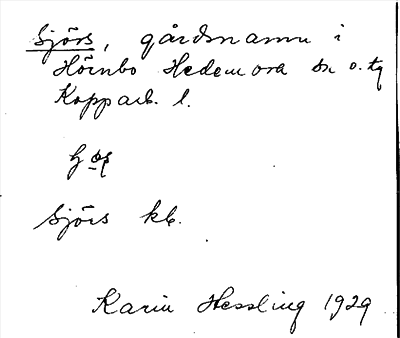 Sjörs, gårdsnamn i
Hörnbo Hedemora sn o. tg
Kopparb. l.
Sjörs kb.
Karin Hessling 1929